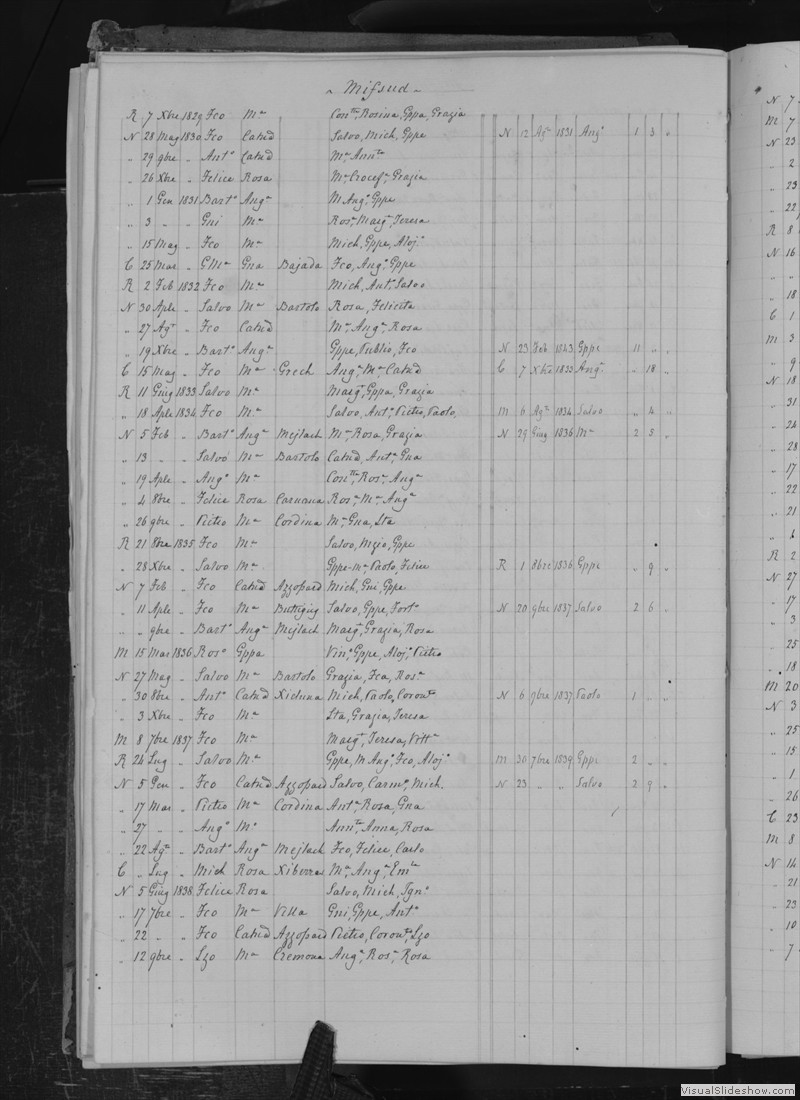 Mifsud
R 7 Xbre 1829 Fco Mª Conᵗᵃ Rosina, Gppa, Grazia
N 28 Mag 1830 Fco Catnd Salvo, Mich, Gppe N 12 Agº 1831 Angº 1 3 „
„ 29 9bre „ Antº Catnd Mª Annᵗᵃ
„ 26 Xbre „ Felice Rosa Mª Crocefª Grazia
„ 1 Gen 1831 Bartº Angª M Angª Gppe
„ 3 „ „ Gni Mª Rosª Margª Teresa
„ 15 Mag „ Fco Mª Mich, Gppe, Alojº
C 25 Mar „ GMª Gna Bajada Fco, Angº Gppe
R 2 Feb 1832 Fco Mª Mich, Antº Salvo
N 30 Aple „ Salvo Mª Bartolo Rosa, Felicita
„ 27 Agº „ Fco Catnd Mª Angª Rosa
„ 19 Xbre „ Bartº Angª Gppe, Publio, Fco N 23 Feb 1843 Gppe 11 „ „
C 15 Mag „ Fco Mª Grech Angª Mª Catnd C 7 Xbre 1833 Angª „ 18 „
R 11 Giug 1833 Salvo Mª Margª Gppa, Grazia
„ 18 Aple 1834 Fco Mª Salvo, Antº Pietro, Paolo, M 6 Agº 1834 Salvo „ 4 „
N 5 Feb „ Bartº Angª Mejlach Mª Rosa, Grazia N 29 Giug 1836 Mª 2 5 „
„ 13 „ „ Salvo Mª Bartolo Catnd, Antª Gna
„ 19 Aple „ Angº Mª Conᵗᵃ Rosª Angª
„ 4 8bre „ Felice Rosa Caruana Rosª Mª Angª
„ 26 9bre „ Pietro Mª Cordina Mª Gna, Sta
R 21 8bre 1835 Fco Mª Salvo, Nzio, Gppe
„ 28 Xbre „ Salvo Mª Gppe-Mª Paolo, Felice R 1 8bre 1836 Gppe „ 9 „
N 7 Feb „ Fco Catnd Azzopard Mich, Gni, Gppe
„ 11 Aple „ Fco Mª Buttigieg Salvo, Gppe, Fortº N 20 9bre 1837 Salvo 2 6 „
„ „ 9bre „ Bartº Angª Mejlach Margª Grazia, Rosa
M 15 Mar 1836 Rosº Gppa Vinº Gppe, Alojº Pietro
N 27 Mag „ Salvo Mª Bartolo Grazia, Fca, Rosª
„ 30 8bre „ Antº Catnd Xicluna Mich, Paolo, Coronᵗᵒ N 6 9bre 1837 Paolo 1 „ „
„ 3 Xbre „ Fco Mª Sta, Grazia, Teresa
M 8 7bre 1837 Fco Mª Margª Teresa, Vittª
R 24 Lug „ Salvo Mª Gppe, M Angº Fco, Alojº M 30 7bre 1839 Gppe 2 „ „
N 5 Gen „ Fco Catnd Azzopard Salvo, Carmº Mich. N 23 „ „ Salvo 2 9 „
„ 17 Mar „ Pietro Mª Cordina Antª Rosa, Gna
„ 27 „ „ Angº Mª Annᵗᵃ Anna, Rosa
„ 22 Agº „ Bartº Angª Mejlach Fco, Felice, Carlo
C „ Lug „ Mich Rosa Xiberra Mª Angª Emᵗᵃ
N 5 Giug 1838 Felice Rosa Salvo, Mich, Ignº
„ 17 7bre „ Fco Mª Vella Gni, Gppe, Antº
„ 22 „ „ Fco Catnd Azzopard Pietro, Coronᵗᵒ Lzo
„ 12 9bre „ Lzo Mª Cremona Angª Rosª Rosa
VisualSlideshow.com